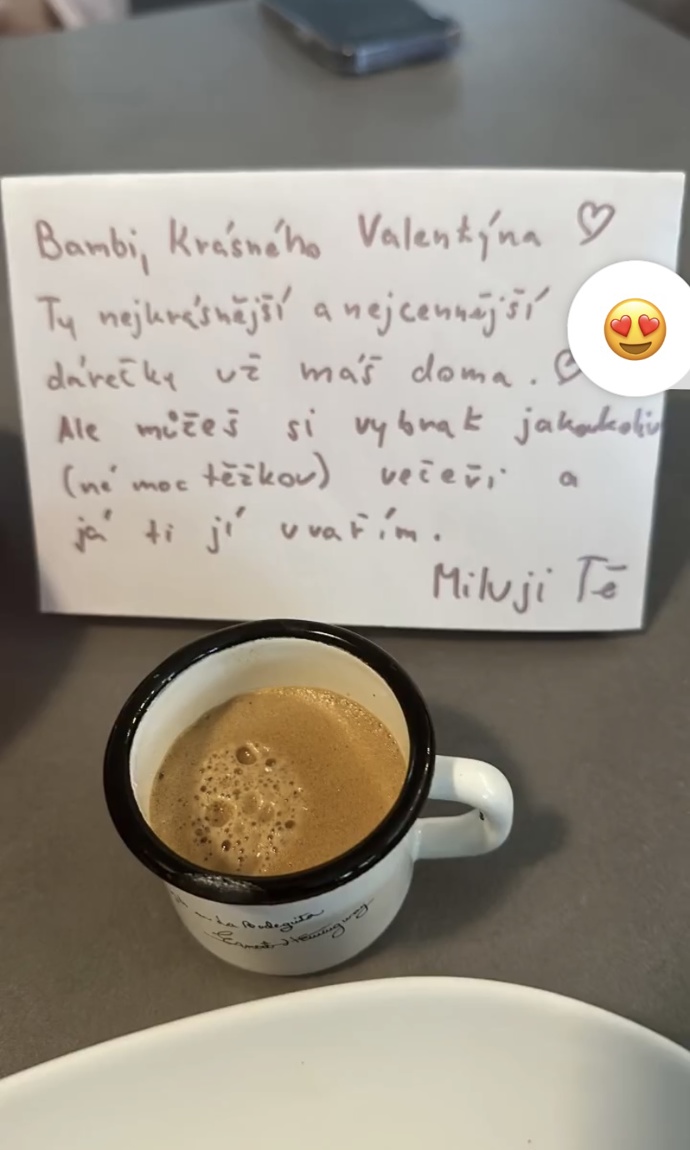 Bambi, Krásného Valentýna ♡
Ty nejkrásnější a nejcennější
dárečky už máš doma. ♡
Ale můžeš si vybrat jakoukoliv
(né moc těžkou) večeři a
já ti jí uvařím.
Miluji Tě
La Bodeguita
Ernest Hemingway